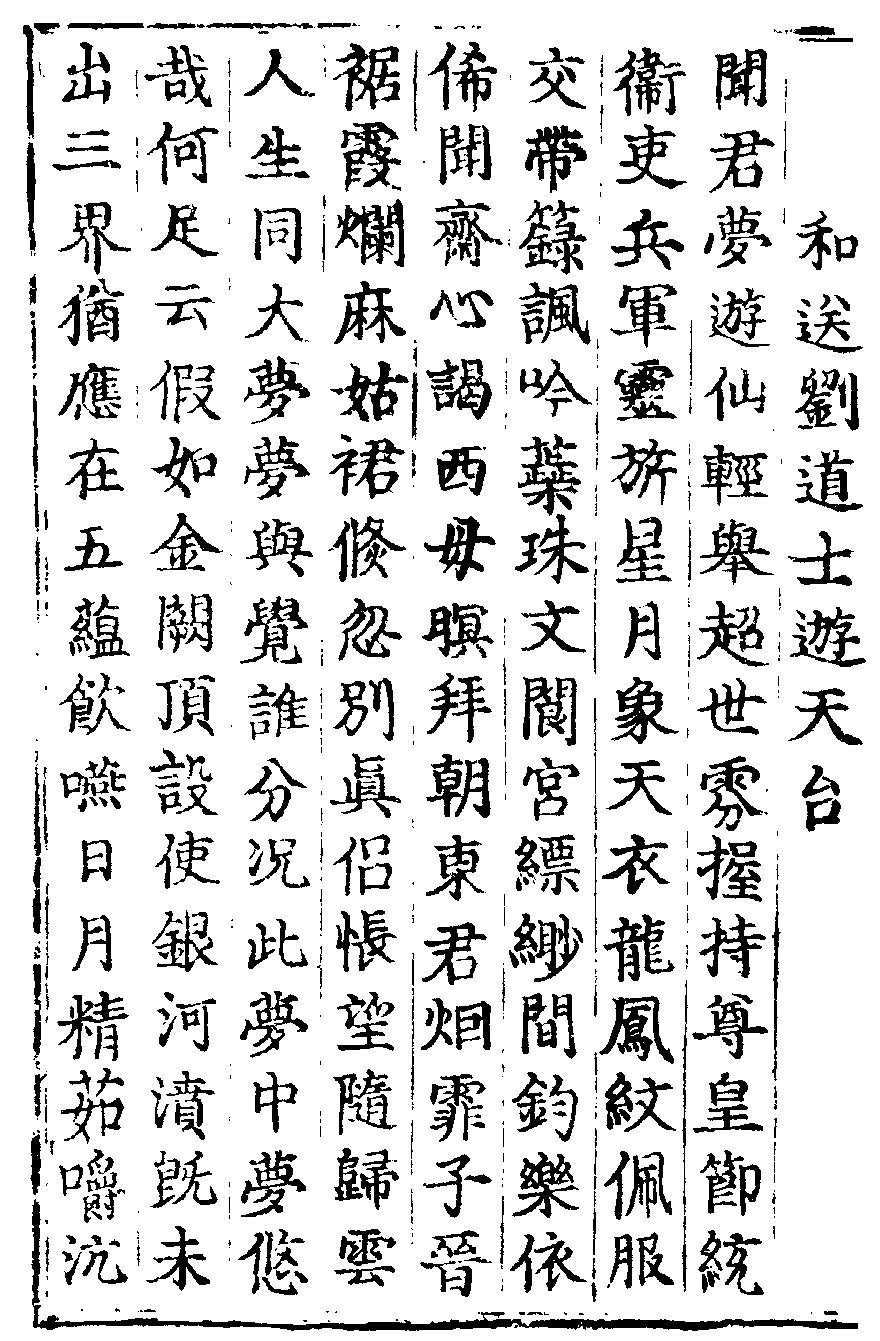 和送劉道士遊天台
聞君夢遊仙輕舉超世雰握持尊皇節統
衞吏兵軍靈旂星月象天衣龍鳳紋佩服
交帶籙諷吟蘂珠文閬宮縹緲間鈞樂依
俙聞齋心謁西毋暝拜朝東君烟霏子晉
裾霞爛麻姑裙倏忽別眞侣悵望隨歸雲
人生同大夢夢與覺誰分况此夢中夢悠
哉何足云假如金闕頂設使銀河濆旣未
出三界猶應在五藴飲嚥日月精茹嚼沆